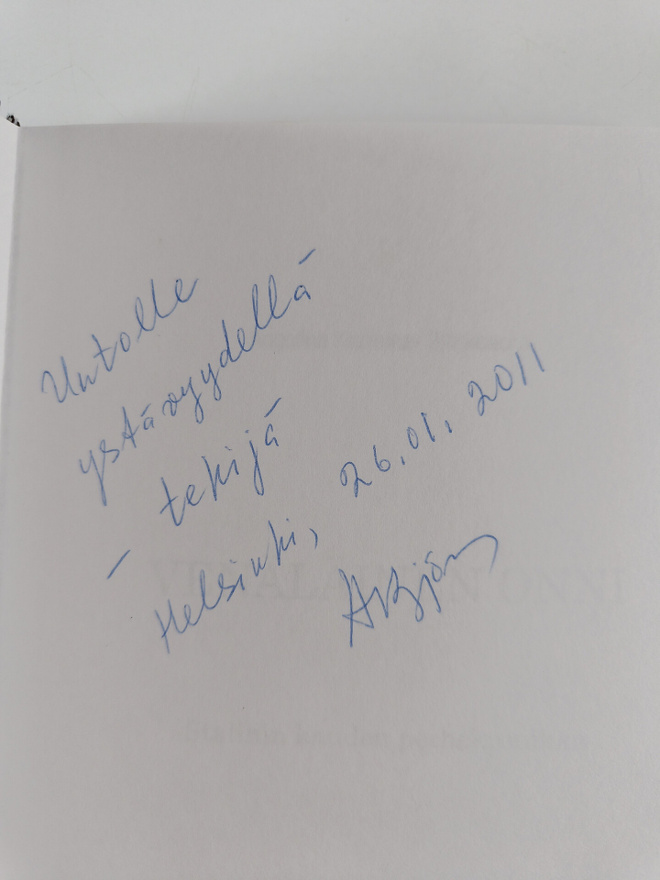 Untolle
ystävyydellä
– tekijä –
Helsinki, 26.01.2011